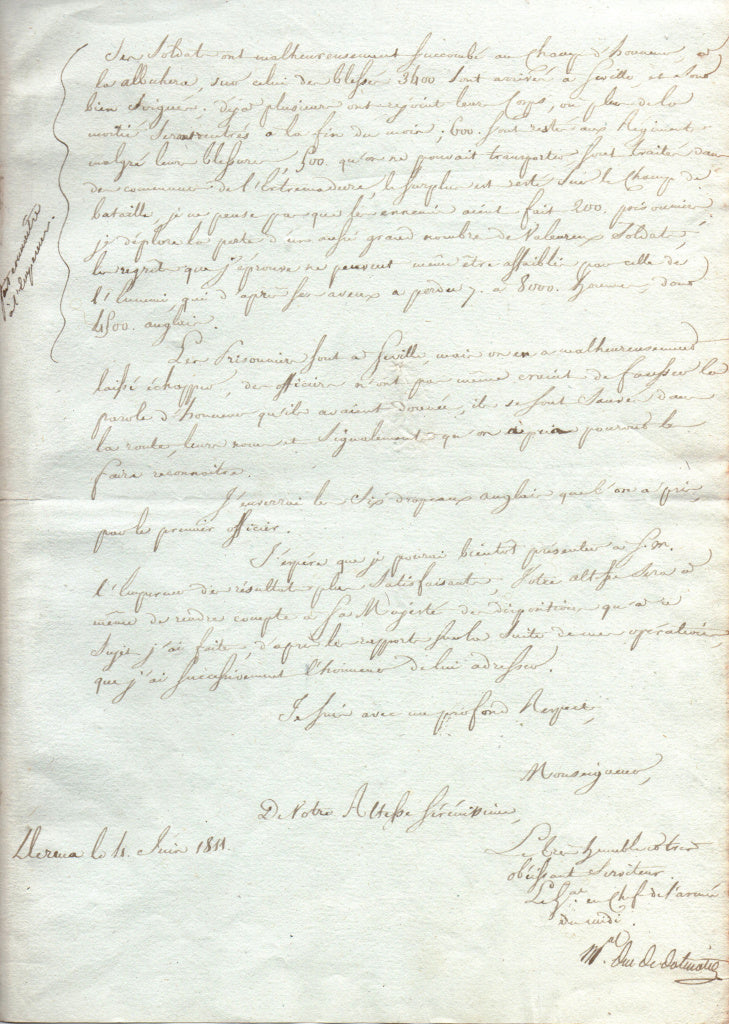 Ses Soldats ont malheureusement succombé au Champ d'honneur, à
la albuhera, sur celui des blessés 3400 sont arrivés à Seville, et sont
bien soignés; déjà plusieurs ont rejoint leur Corps, ou plus de la
moitié seront rentrés à la fin du mois; 600. sont restés aux Régiments
malgré leurs blessures, 500. qu'on ne pouvait transporter sont traités dans
des communes de l'Extremadure, le surplus est resté sur le Champ de
bataille, je ne pense pas que les ennemis aient fait 200. prisonniers
je déplore la perte d'un aussi grand nombre de valeureux Soldats,
les regrets que j'éprouve ne peuvent même être affaiblis par celle de
l'Ennemi, qui d'après ses aveux a perdu 7. à 8000. hommes, dont
4500. anglais.
Les Prisonniers sont à Seville, mais on en a malheureusement
laissé échapper, des officiers n'ont pas même craint de fausser la
parole d'honneur qu'ils avaient donnée, ils se sont sauvés dans
la route, leurs noms et signalements qu'on a pris pourront les
faire reconnaitre.
J'enverrai les Six drapeaux anglais que l'on a pris
par le premier officier.
J'espère que je pourrai bientôt présenter à S. M.
l'Empereur des résultats plus satisfaisants, Votre altesse sera à
même de rendre compte à Sa Majesté des dispositions qu'à ce
sujet j'ai faites, d'après les rapports sur la suite de mes opérations,
que j'ai successivement l'honneur de lui adresser.
Je suis avec un profond Respect,
Monseigneur,
De Votre Altesse Sérénissime,
Llerena le 4. Juin 1811.
Le très humble et très
obéissant Serviteur.
Le G.al en Chef de l'armée
du midi.
M.al duc de dalmatie